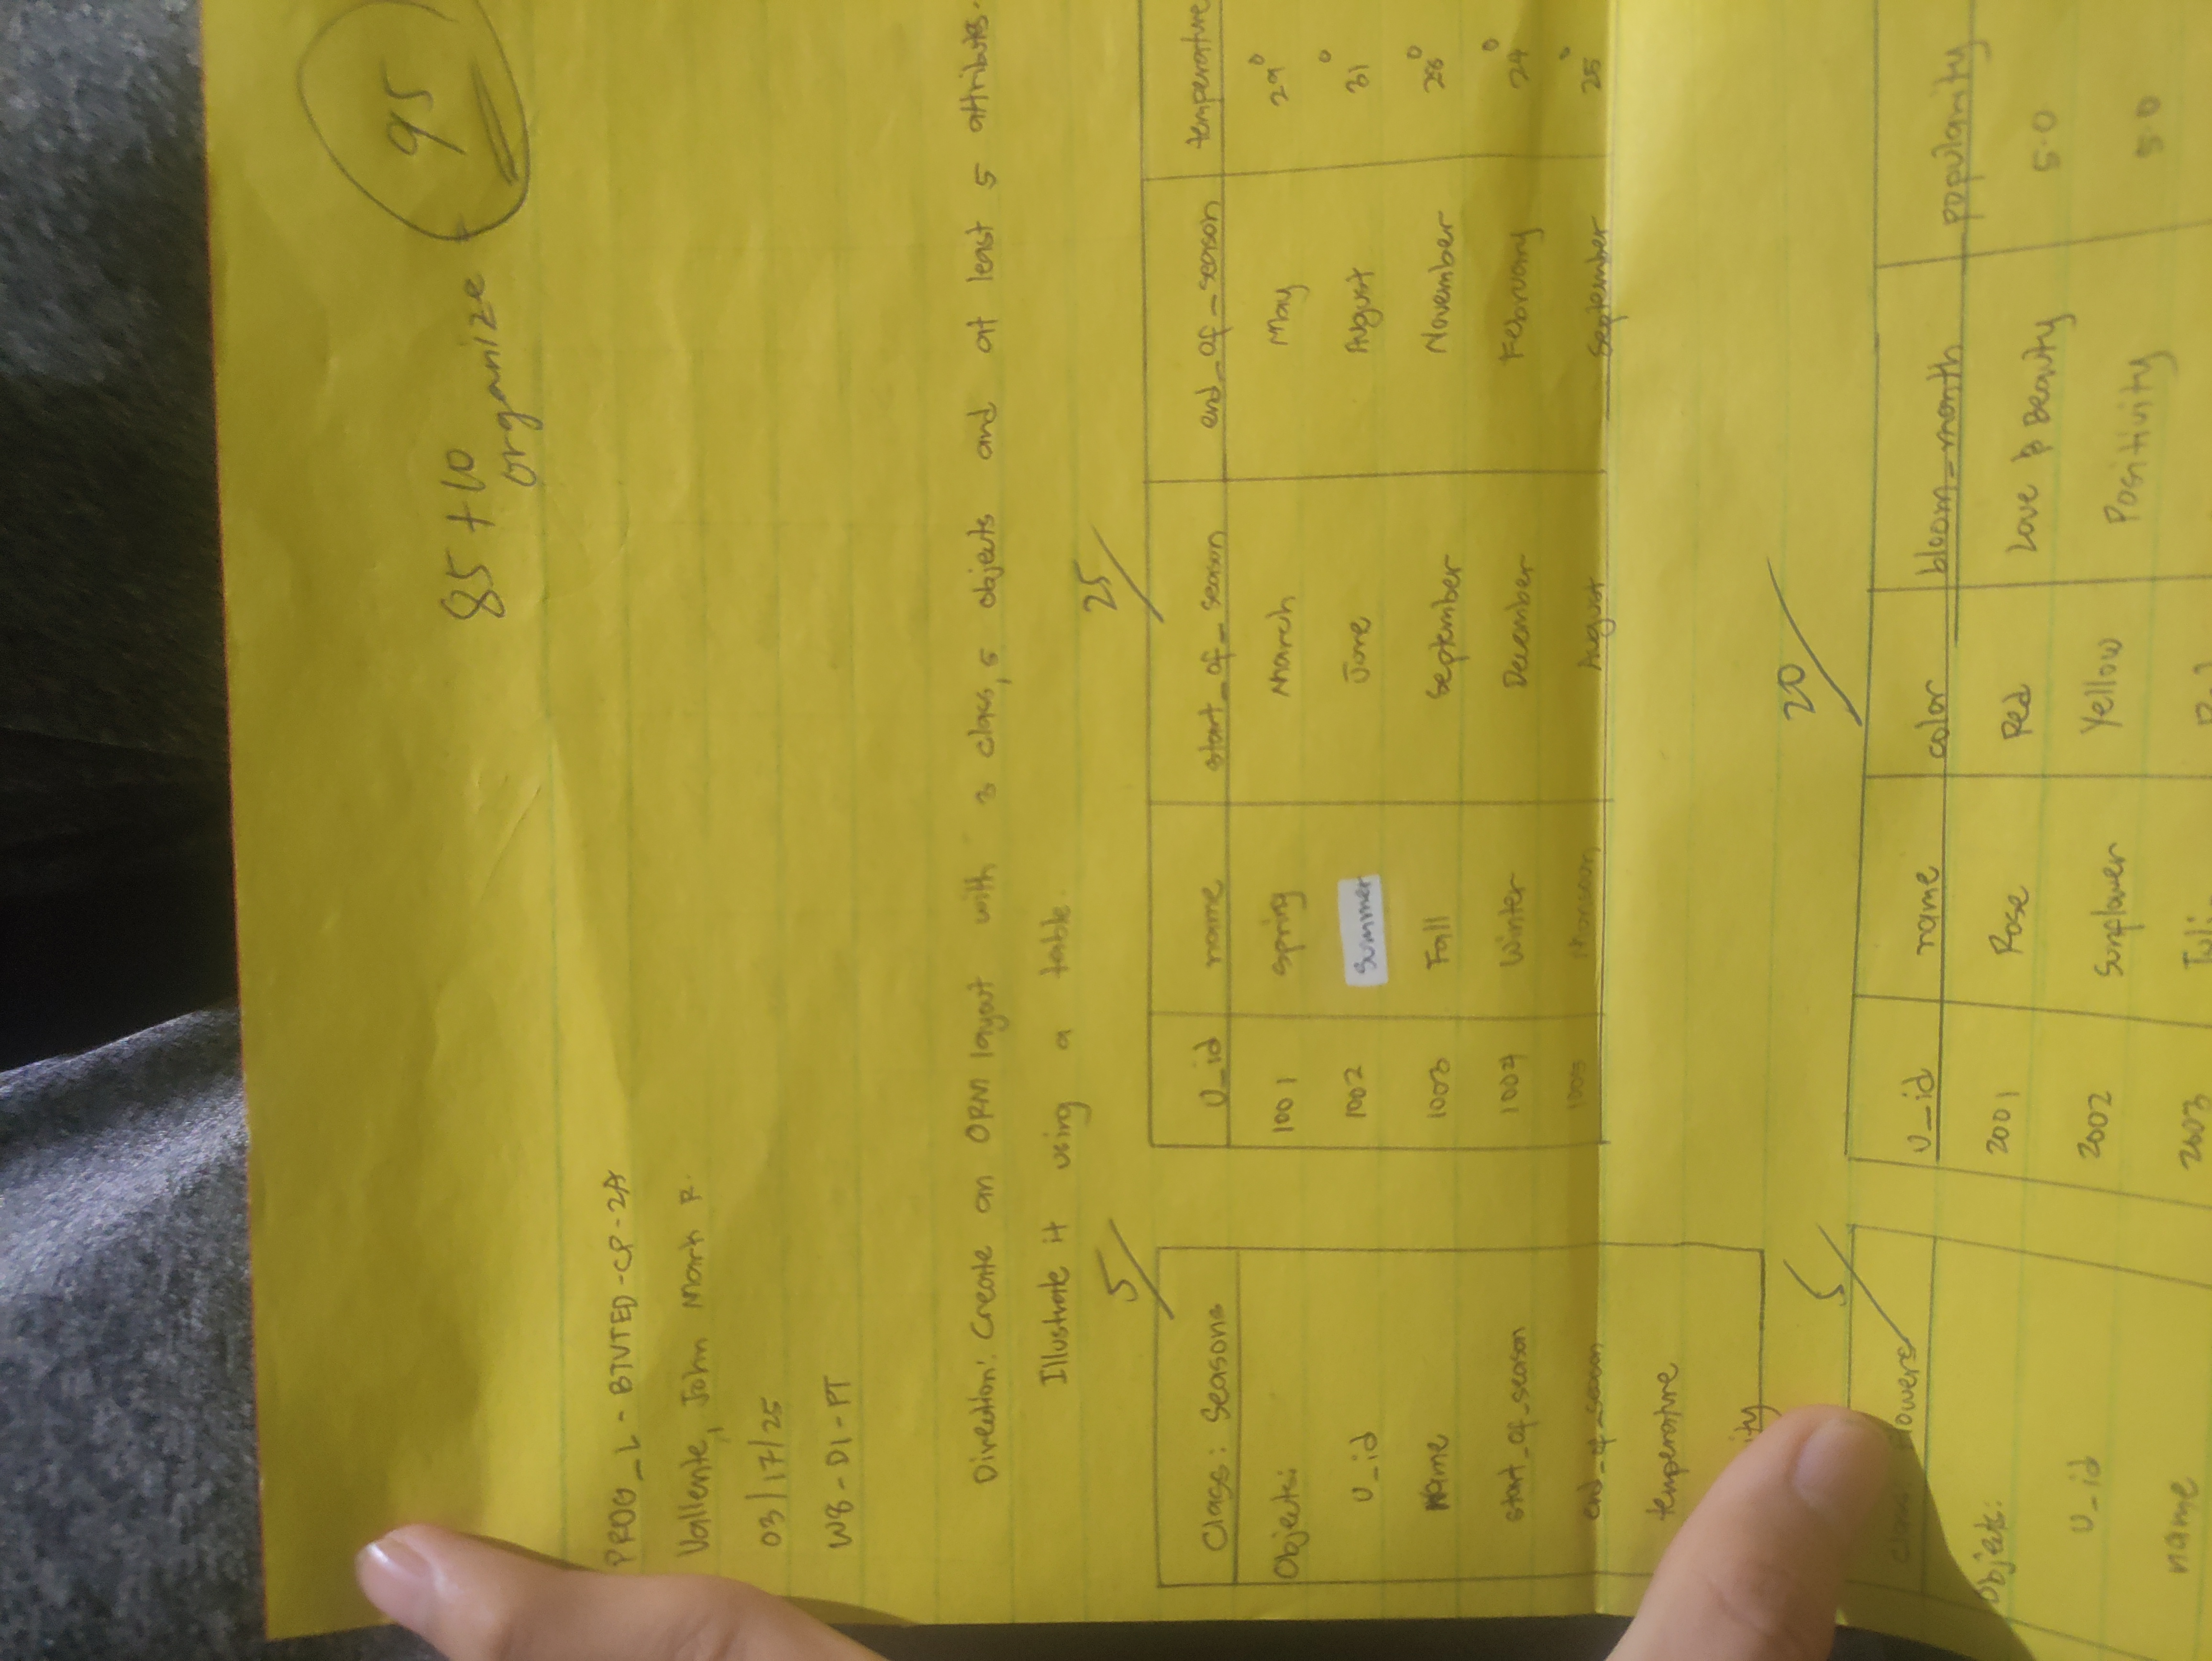 95
85 + 10
organize
PROG_L - BTVTED - CP - 2A
Vallente, John Mark R.
03/17/25
W8 - D1 - PT
Direction: Create an ORM layout with 3 class, 5 objects and at least 5 attributes.
Illustrate it using a table.
5/
25/
Class: Seasons
Objects:
U_id
Name
start_of_season
end_of_season
temperature
U_id name start_of_season end_of_season temperature
1001 Spring March May 29°
1002 Summer June August 31°
1003 Fall September November 28°
1004 Winter December February 24°
1005 Monsoon August September 25°
5/
20/
Class: Flowers
Objects:
U_id
name
U_id name color bloom_month popularity
2001 Rose Red Love & Beauty 5.0
2002 Sunflower Yellow Positivity 5.0
2003